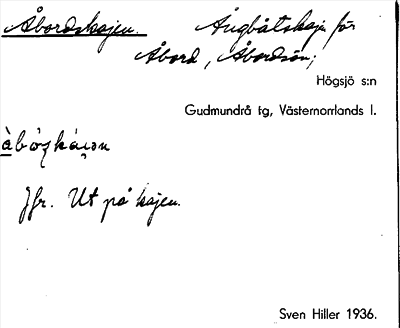 Åbordskajen. Ångbåtskaj för
Åbord, Åbordsön;
Högsjö s:n
Gudmundrå tg, Västernorrlands l.
Jfr. Ut på kajen.
Sven Hiller 1936.